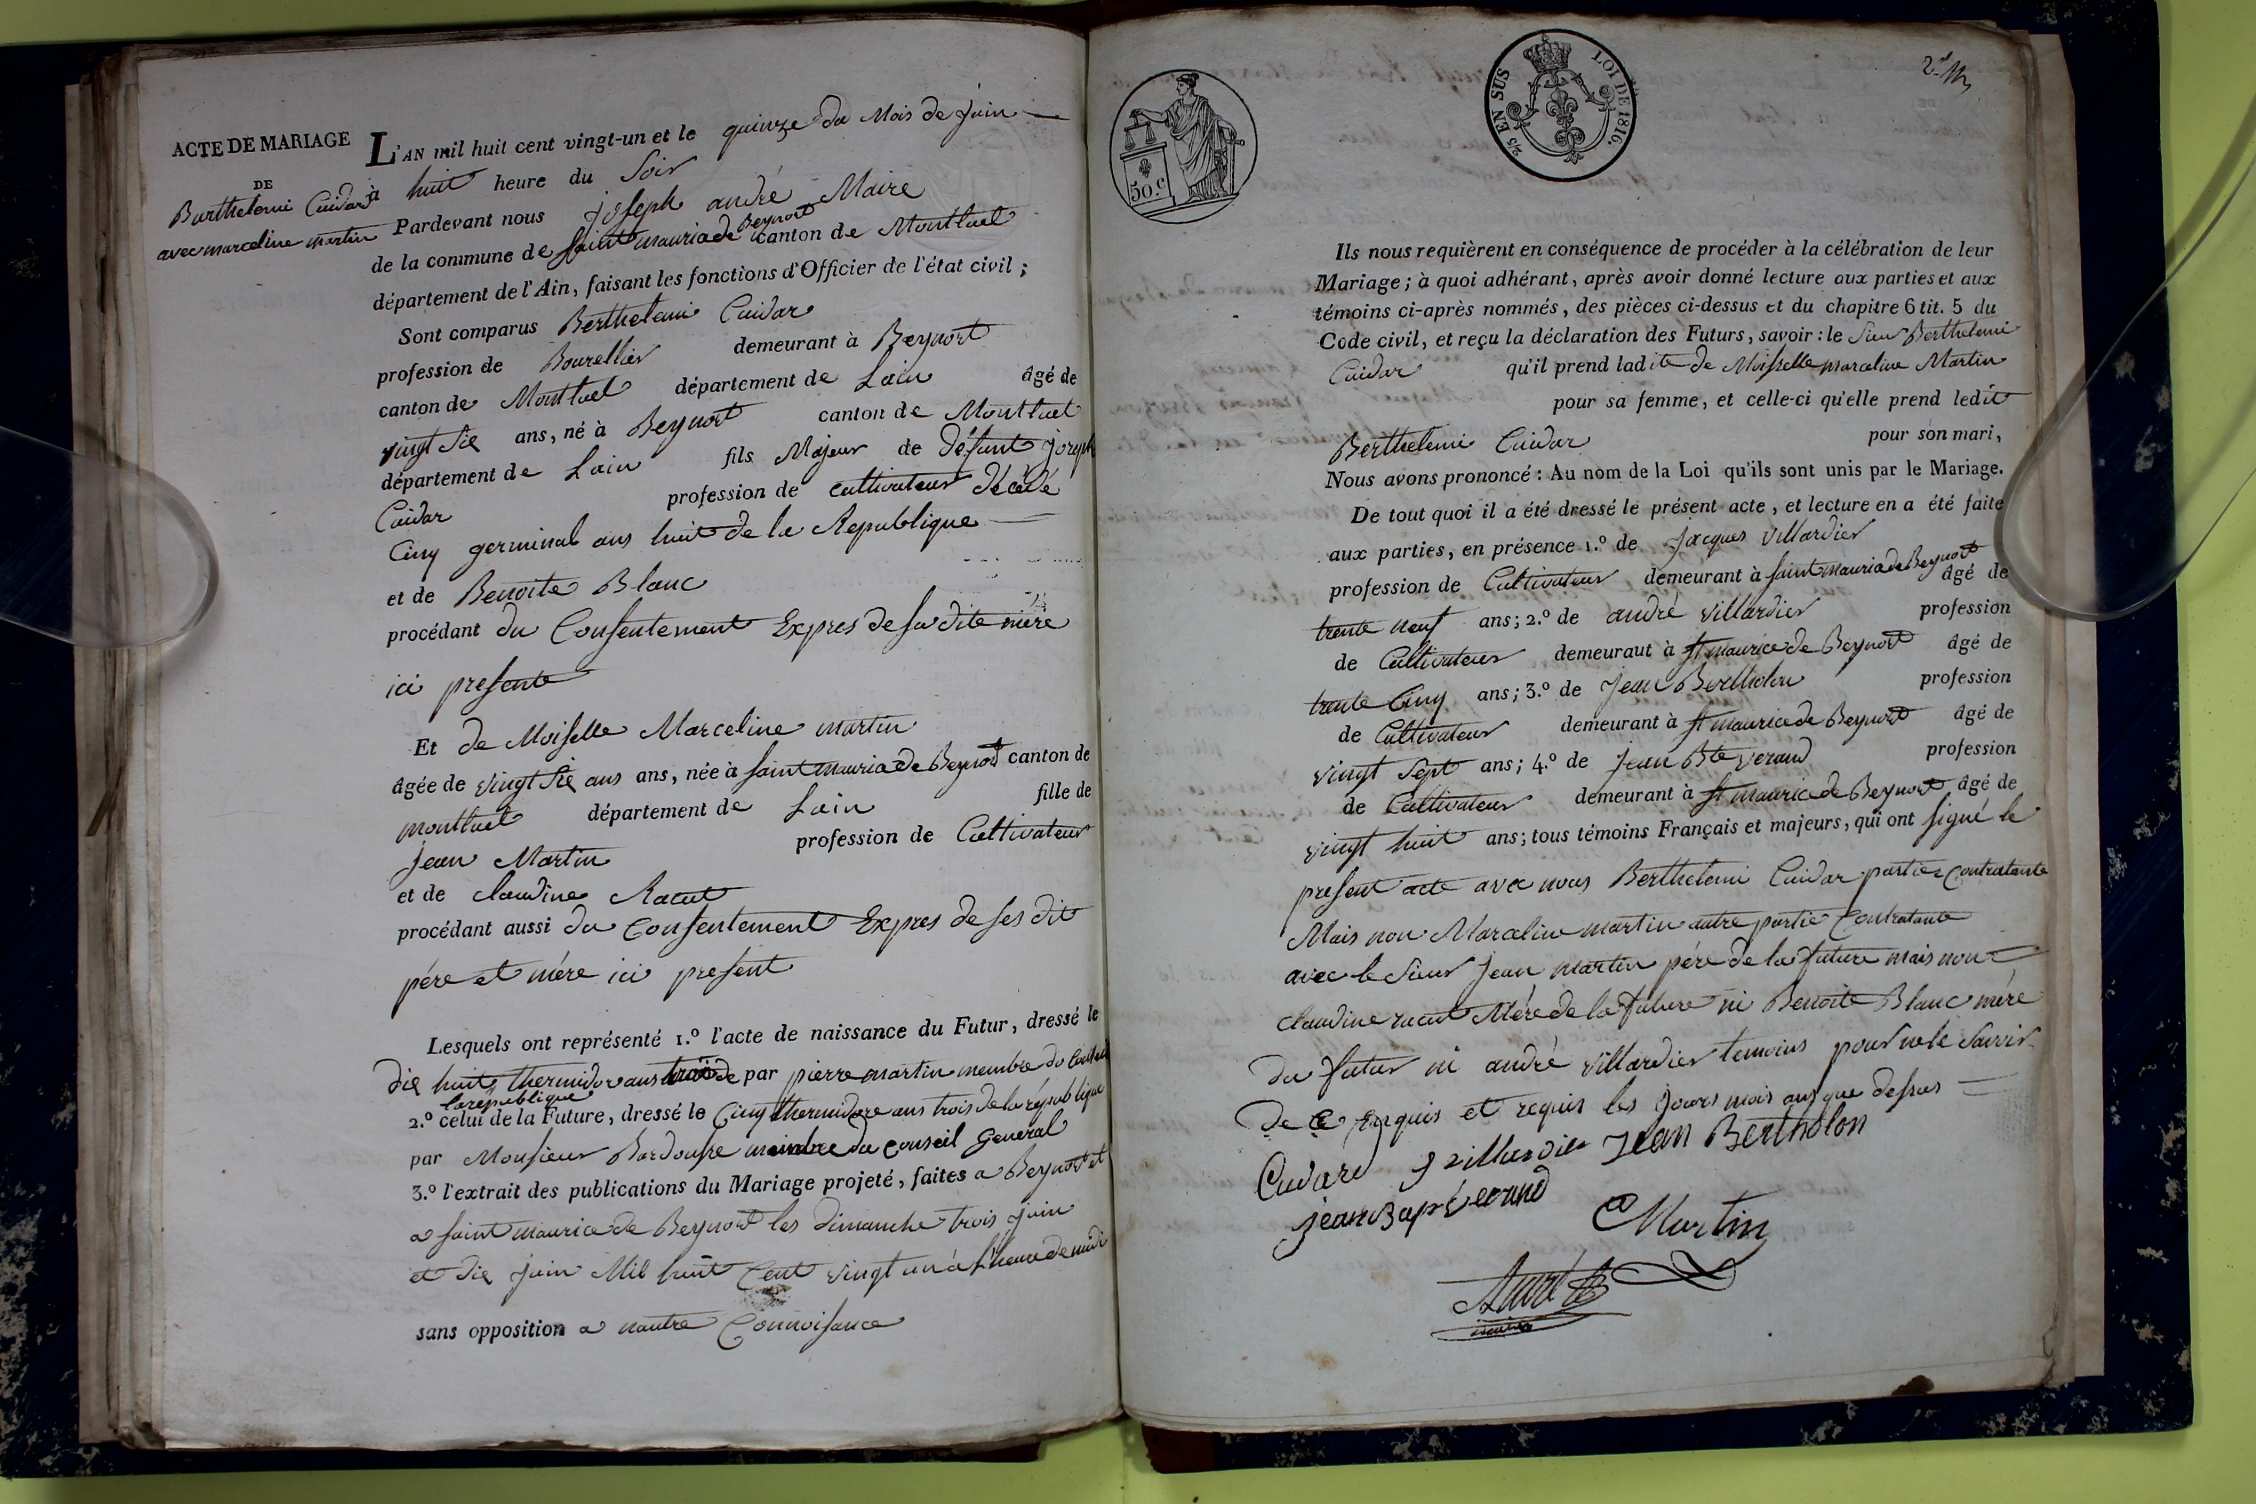 ACTE DE MARIAGE
DE
Barthelemi Cuidar
avec marceline martin
L'AN mil huit cent vingt-un et le quinze du Mois de Juin
à huit heure du Soir
Pardevant nous joseph andré Maire
de la commune de saint mauricede Beynost canton de Montluel
département de l'Ain, faisant les fonctions d'Officier de l'état civil ;
Sont comparus Berthelemi Cuidar
profession de Bourellier demeurant à Beynost
canton de Montluel département de Lain âgé de
vingt Six ans, né à Beynost canton de Montluel
département de Lain fils Majeur de défunt joseph
Cuidar profession de cultivateur décédé
Cinq germinal ans huit de la Republique
et de Benoite Blanc
procédant du Consentement Expres de sa dite mère
ici presente
Et de Moiselle Marceline martin
âgée de vingt Six ans ans, née à saint mauricede Beynost canton de
montluel département de Lain fille de
Jean Martin profession de Cultivateur
et de claudine Racut
procédant aussi du Consentement Expres de ses dit
pére et mére ici present
Lesquels ont représenté 1.º l'acte de naissance du Futur, dressé le
dix huit thermidor ans trois de par pierre martin membre du
la république
2.º celui de la Future, dressé le Cinq thermidore ans trois de la république
par Monsieur membre du conseil General
3.º l'extrait des publications du Mariage projeté, faites a Beynost et
a saint maurice de Beynost les dimanche trois juin
et dix juin Mil huit Cent vingt un à l'heure de midi
sans opposition a nautre Connoisance
50.C
2/5 EN SUS
LOI DE 1816.
Ils nous requièrent en conséquence de procéder à la célébration de leur
Mariage ; à quoi adhérant, après avoir donné lecture aux parties et aux
témoins ci-après nommés, des pièces ci-dessus et du chapitre 6 tit. 5 du
Code civil, et reçu la déclaration des Futurs, savoir : le Sieur Berthelemi
Cuidar qu'il prend ladite de Moiselle marceline Martin
pour sa femme, et celle-ci qu'elle prend ledit
Berthelemi Cuidar pour son mari,
Nous avons prononcé : Au nom de la Loi qu'ils sont unis par le Mariage.
De tout quoi il a été dressé le présent acte, et lecture en a été faite
aux parties, en présence 1.º de Jacques Villardier
profession de Cultivateur demeurant à saint mauricede Beynost âgé de
trente neuf ans ; 2.º de andré villardier profession
de Cultivateur demeuraut à st maurice de Beynost âgé de
trente Cinq ans ; 3.º de Jean Bertholon profession
de Cultivateur demeurant à st maurice de Beynost âgé de
vingt Sept ans ; 4.º de Jean Bte verand profession
de Cultivateur demeurant à st maurice de Beynost âgé de
vingt huit ans ; tous témoins Français et majeurs, qui ont signé le
present acte avec nous Berthelemi Cuidar partie Contratante
Mais non Marceline martin autre partie Contratante
avec le Sieur Jean martin pére de la future mais non
claudine racut Mére de la future ni Benoite Blanc mére
du futur ni andré villardier temoins pour ne le Savoir
de Ce Enquis et requis les jours mois ans que dessus
Cuidard J villardier Jean Bertholon
jean Bap verand
Martin
André
maire